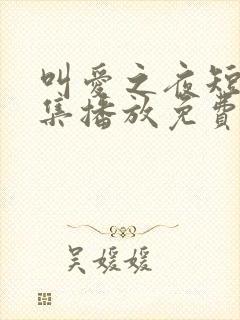 叫爱之夜短
集播放免费
吴媛媛